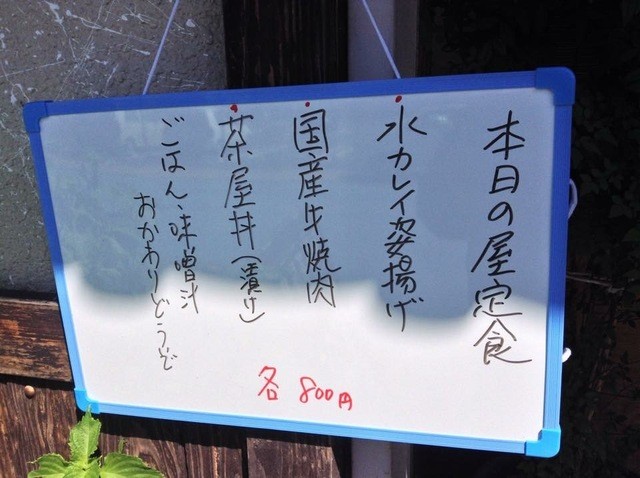 本日の屋定食
水カレイ姿揚げ
国産牛焼肉
茶屋丼(漬け)
ごはん、味噌汁
おかわりどうぞ
各 800円